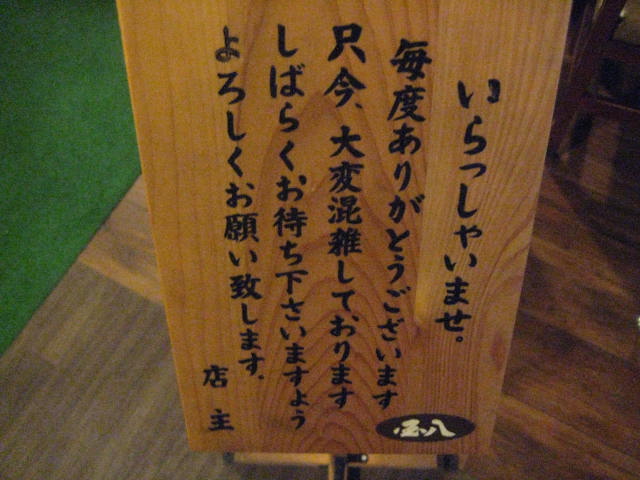 いらっしゃいませ。
毎度ありがとうございます
只今、大変混雑しております
しばらくお待ち下さいますよう
よろしくお願い致します。
店主